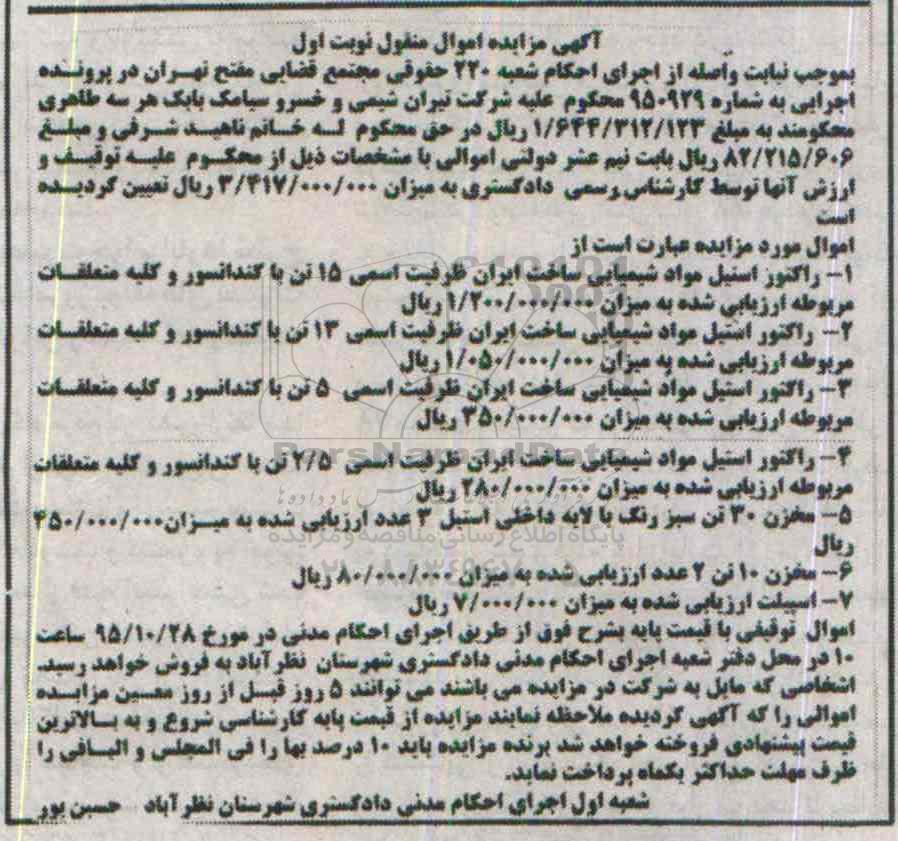 آگهی مزایده اموال منقول نوبت اول
بموجب نیابت واصله از اجرای احکام شعبه ۲۲۰ حقوقی مجتمع قضایی مفتح تهران در پرونده
اجرایی به شماره ۹۵۰۹۲۹ محکوم علیه شرکت تیران شیمی و خسرو سیامک بابک هر سه طاهری
محکومند به مبلغ ۱/۶۴۴/۳۱۲/۱۲۳ ریال در حق محکوم له خانم ناهید شرفی و مبلغ
۸۲/۲۱۵/۶۰۶ ریال بابت نیم عشر دولتی اموالی با مشخصات ذیل از محکوم علیه توقیف و
ارزش آنها توسط کارشناس رسمی دادگستری به میزان ۳/۴۱۷/۰۰۰/۰۰۰ ریال تعیین گردیده
است
اموال مورد مزایده عبارت است از
۱- راکتور استیل مواد شیمیایی ساخت ایران ظرفیت اسمی ۱۵ تن با کندانسور و کلیه متعلقات
مربوطه ارزیابی شده به میزان ۱/۲۰۰/۰۰۰/۰۰۰ ریال
۲- راکتور استیل مواد شیمیایی ساخت ایران ظرفیت اسمی ۱۳ تن با کندانسور و کلیه متعلقات
مربوطه ارزیابی شده به میزان ۱/۰۵۰/۰۰۰/۰۰۰ ریال
۳- راکتور استیل مواد شیمیایی ساخت ایران ظرفیت اسمی ۵ تن با کندانسور و کلیه متعلقات
مربوطه ارزیابی شده به میزان ۳۵۰/۰۰۰/۰۰۰ ریال
ParsNamadData
۴- راکتور استیل مواد شیمیایی ساخت ایران ظرفیت اسمی ۲/۵ تن با کندانسور و کلیه متعلقات
مربوطه ارزیابی شده به میزان ۲۸۰/۰۰۰/۰۰۰ ریال
۵- مخزن ۳۰ تن سبز رنگ با لایه داخلی استیل ۳ عدد ارزیابی شده به میزان ۴۵۰/۰۰۰/۰۰۰
پایگاه اطلاع رسانی مناقصه و مزایده
ریال
۶- مخزن ۱۰ تن ۲ عدد ارزیابی شده به میزان ۸۰/۰۰۰/۰۰۰ ریال
۷- اسپیلت ارزیابی شده به میزان ۷/۰۰۰/۰۰۰ ریال
اموال توقیفی با قیمت پایه بشرح فوق از طریق اجرای احکام مدنی در مورخ ۹۵/۱۰/۲۸ ساعت
۱۰ در محل دفتر شعبه اجرای احکام مدنی دادگستری شهرستان نظر آباد به فروش خواهد رسید.
اشخاصی که مایل به شرکت در مزایده می باشند می توانند ۵ روز قبل از روز معین مزایده
اموالی را که آگهی گردیده ملاحظه نمایند مزایده از قیمت پایه کارشناسی شروع و به بالاترین
قیمت پیشنهادی فروخته خواهد شد برنده مزایده باید ۱۰ درصد بها را فی المجلس و الباقی را
ظرف مهلت حداکثر یکماه پرداخت نماید.
شعبه اول اجرای احکام مدنی دادگستری شهرستان نظر آباد حسین پور